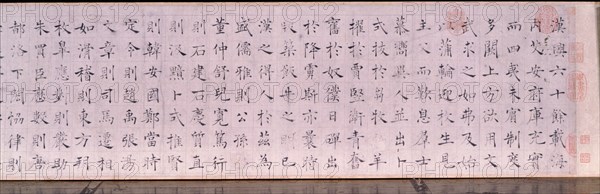 漢興六十餘載海
內艾安府庫充實
而四夷未賓制度
多闕上方欲用文
武求之如弗及始
以蒲輪迎枚生見
主父而歎息羣士
慕嚮異人並出卜
式拔於芻牧弘羊
擢於賈豎衛青
奮於奴僕日磾出
於降虜斯亦曩時
版築飯牛之朋已
漢之得人於茲為
盛儒雅則公孫弘
董仲舒兒寬篤行
則石建石慶質直
則汲黯卜式推賢
則韓安國鄭當時
定令則趙禹張湯
文章則司馬遷相
如滑稽則東方朔
枚皋應對則嚴助
朱買臣歷數則唐
都洛下閎協律則